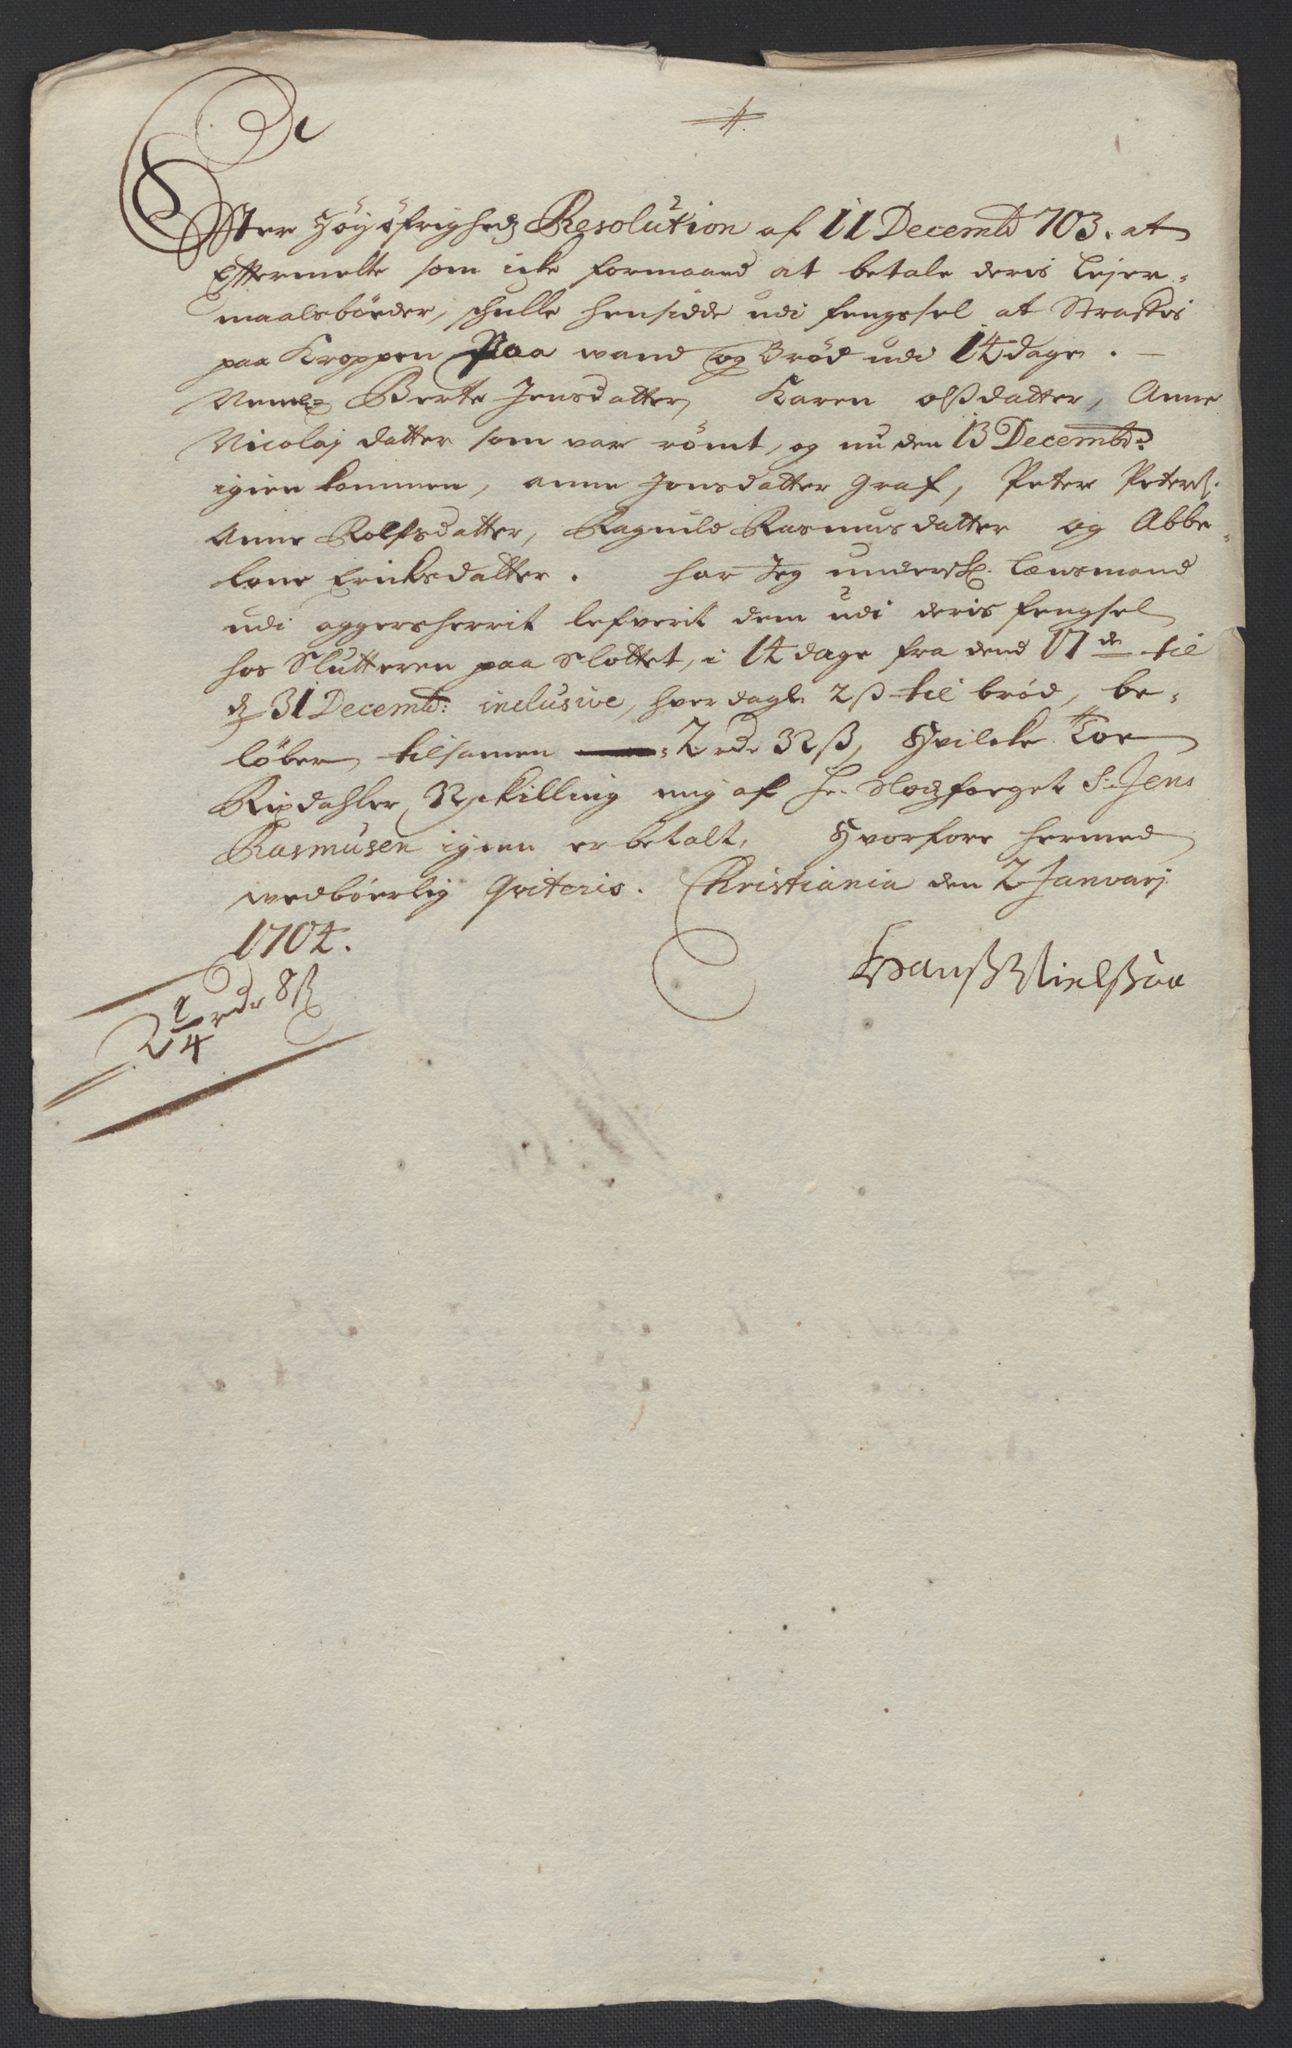 Effter Höyöfrigheds Resolution af 11 Decembr 703. at
Eftermelte som icke formaaed at betale deris lejer-
maalsböeder, schulle hensidde udi fengssel at Straffis
paa Kroppen Paa wand og Bröd udi 14 dage. —
Neml. Berte Jensdatter, Karen olsdatter, Anne
Nicolaj datter som var römt, og nu den 13 Decembr.
igien kommen, anne Jonsdatter Graf, Peter Peters.
Anne Rolfsdatter, Ragnild Rasmusdatter og Abbe-
lone Ericksdatter. har Jeg undersk. Lensmand
udi aggersherrit lefverit dem udi deris fengsel
hos Slutteren paa Slottet, i 14 dage fra dend 17de til
d. 31 Decembr: inclusive, hver dagl. 2 ß til bröd, be-
löber tilsamen 2 rdr 32 ß, Hvilcke Toe
Rixdahler, 32 skilling mig af Hr. Slotzfoeget Sr. Jens
Rasmusen igien er betalt, Hvorfore hermed
wedböerlig Qviteris. Christiania den 2 Januarj
1704.
Hanß Nielßøn
2 1/4 rdr 8 ß